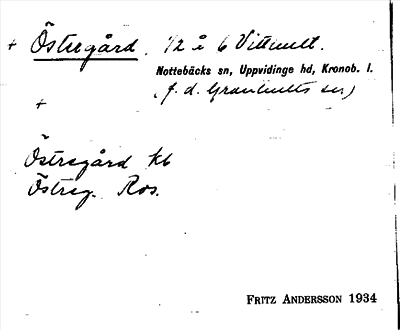 + Östergård. 1/2 å 6 Vithult.
Nottebäcks sn, Uppvidinge hd, Kronob. l.
(f. d. Granhults sn)
+
Östregård kb
Östreg. Ros.
FRITZ ANDERSSON 1934